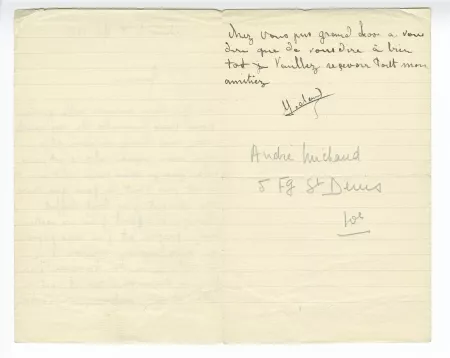 chez vous pas grand chose a vous
dire que de vous dire à bien
tot Veuillez reçevoir tout mon
amitiez
André Michaud
5 Fg St Denis
10e